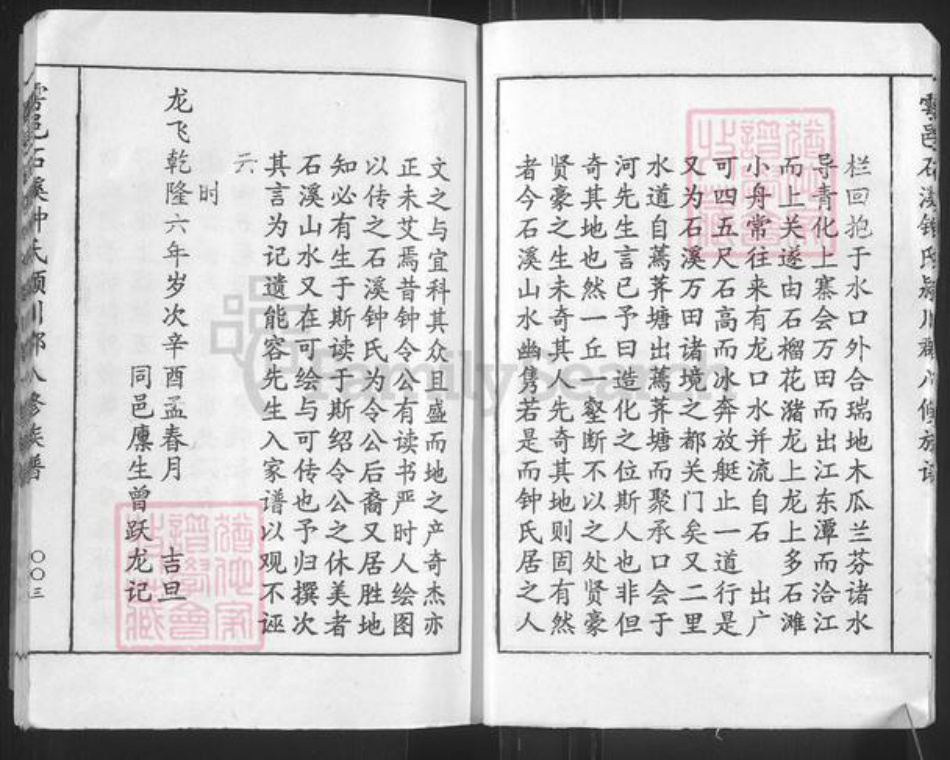 栏回抱于水口外合瑞地木瓜兰芬诸水
导青化上寨会万田而出江东潭而洽江
而上关遂由石榴花潴龙上龙上多石滩
小舟常往来有龙口水并流自石 出广
可四五尺石高而冰奔放艇止一道行是
又为石溪万田诸境之都关门矣又二里
水道自蔫荞塘出蔫荞塘而聚承口会于
河先生言已予曰造化之位斯人也非但
奇其地也然一丘一壑断不以之处贤豪
贤豪之生未奇其人先奇其地则固有然
者今石溪山水幽隽若是而钟氏居之人
文之与宜科其众且盛而地之产奇杰亦
正未艾焉昔钟令公有读书严时人绘图
以传之石溪钟氏为令公后裔又居胜地
知必有生于斯读于斯绍令公之休美者
石溪山水又在可绘与可传也予归撰次
其言为记遗能容先生入家谱以观不诬
云
时
龙飞乾隆六年岁次辛酉孟春月 吉旦
同邑廪生曾跃龙记
雩邑石溪钟氏颍川郡八修族谱
〇〇三
FamilySearch